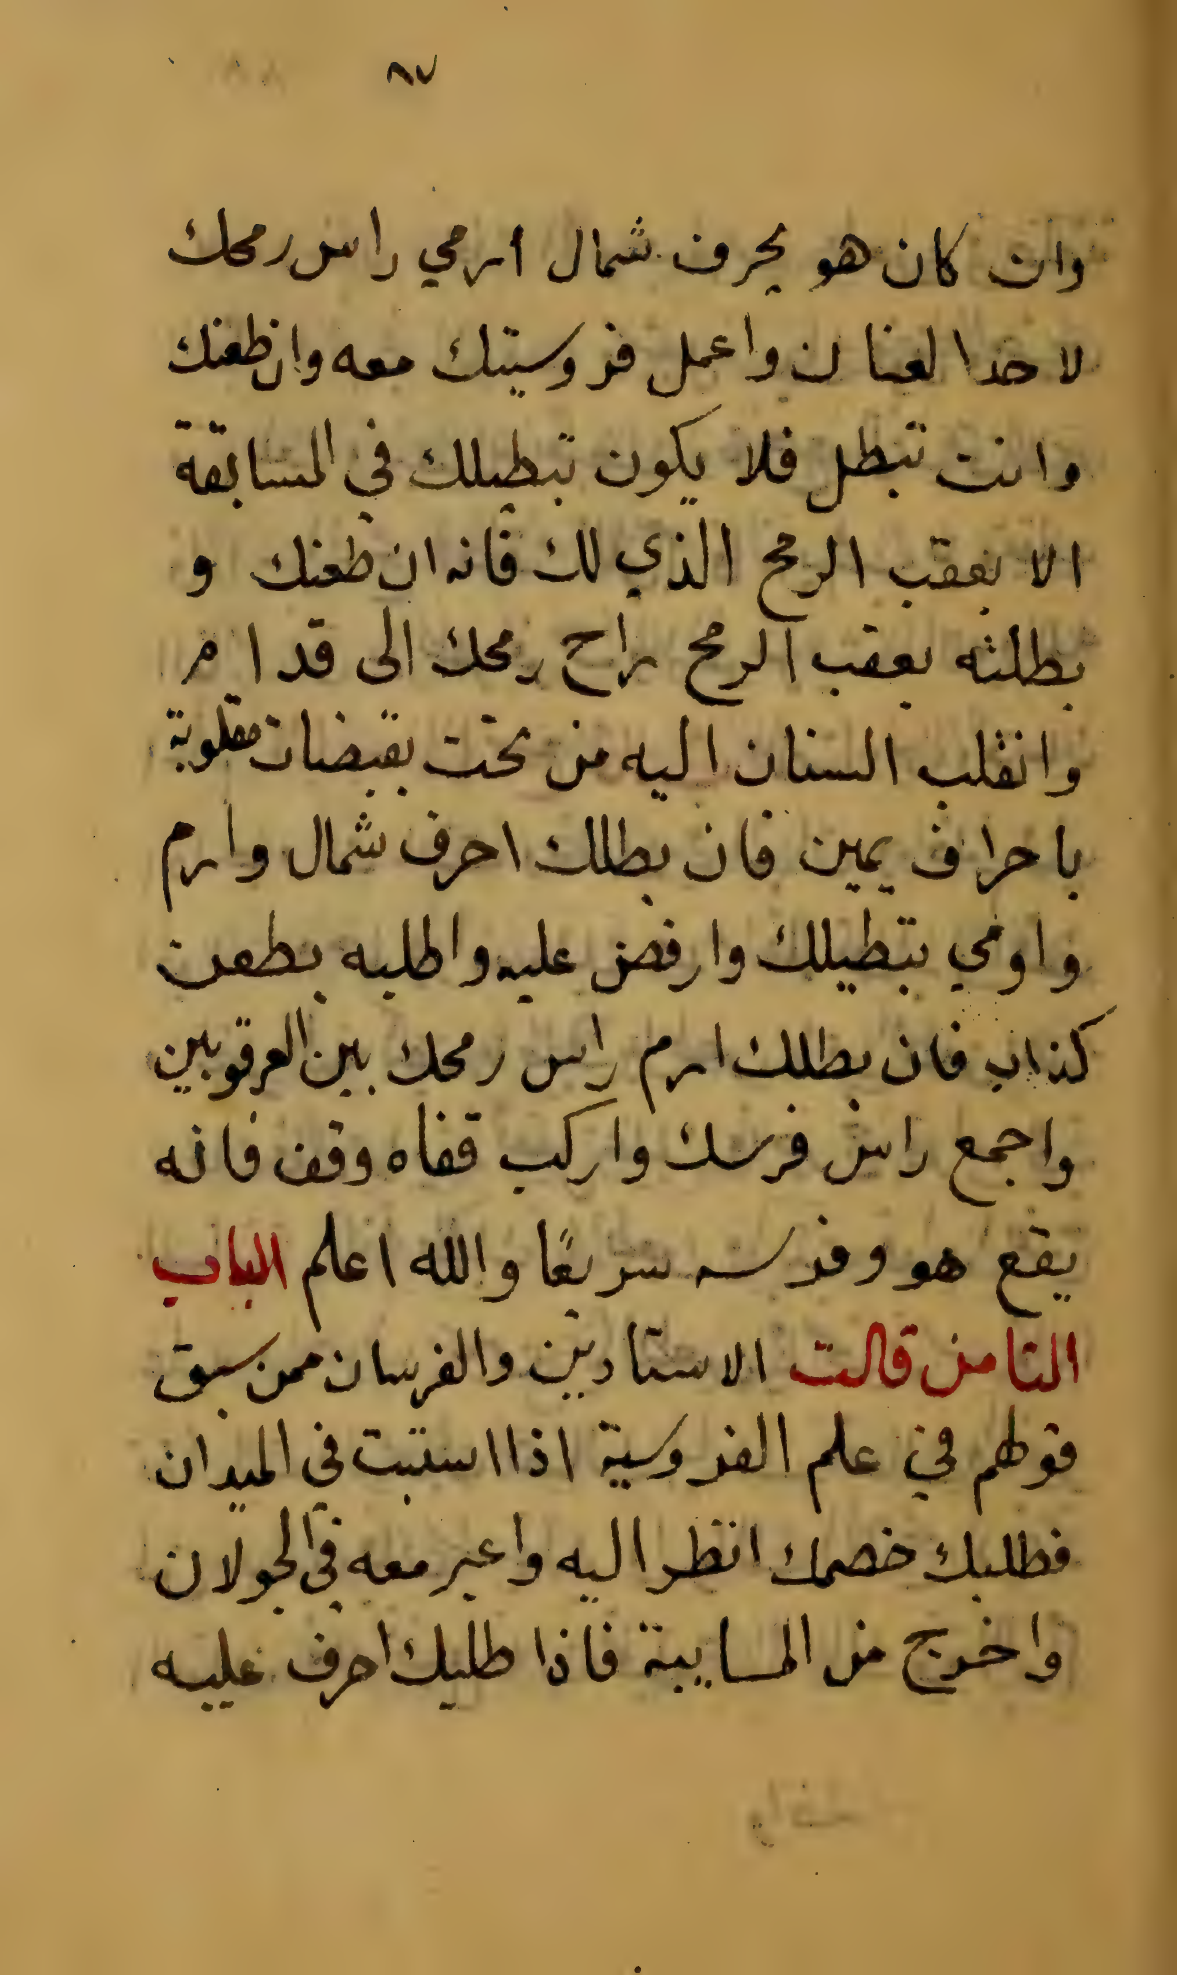 ٨٧
وان كان هو يحرف شمال ارمي راس رمحك
لاخدا لعنان واعمل فروسيتك معه وان طعنك
وانت تبطل فلا يكون تبطيلك في المسابقة
الا بعقب الرمح الذي لك فانه ان طعنك و
بطلته بعقب الرمح راح رمحك الى قدام
وانقلب السنان اليه من تحت بقبضات مقلوبة
باحراف يمين فان بطلك احرف شمال وارم
واومي بتطيلك وارفض عليه واطلبه بطعن
كذاب فان بطلك ارم راس رمحك بين العرقوبين
واجمع راس فرسك واركب قفاه وقف فانه
يقع هو وفرسه سريعًا والله اعلم الباب
الثامن قالت الاستادين والفرسان ممن سبق
قولهم في علم الفروسية اذا استبت في الميدان
فطلبك خصمك انظر اليه واعبر معه في الجولان
واخرج من المسايبة فاذا طلبك احرف عليه